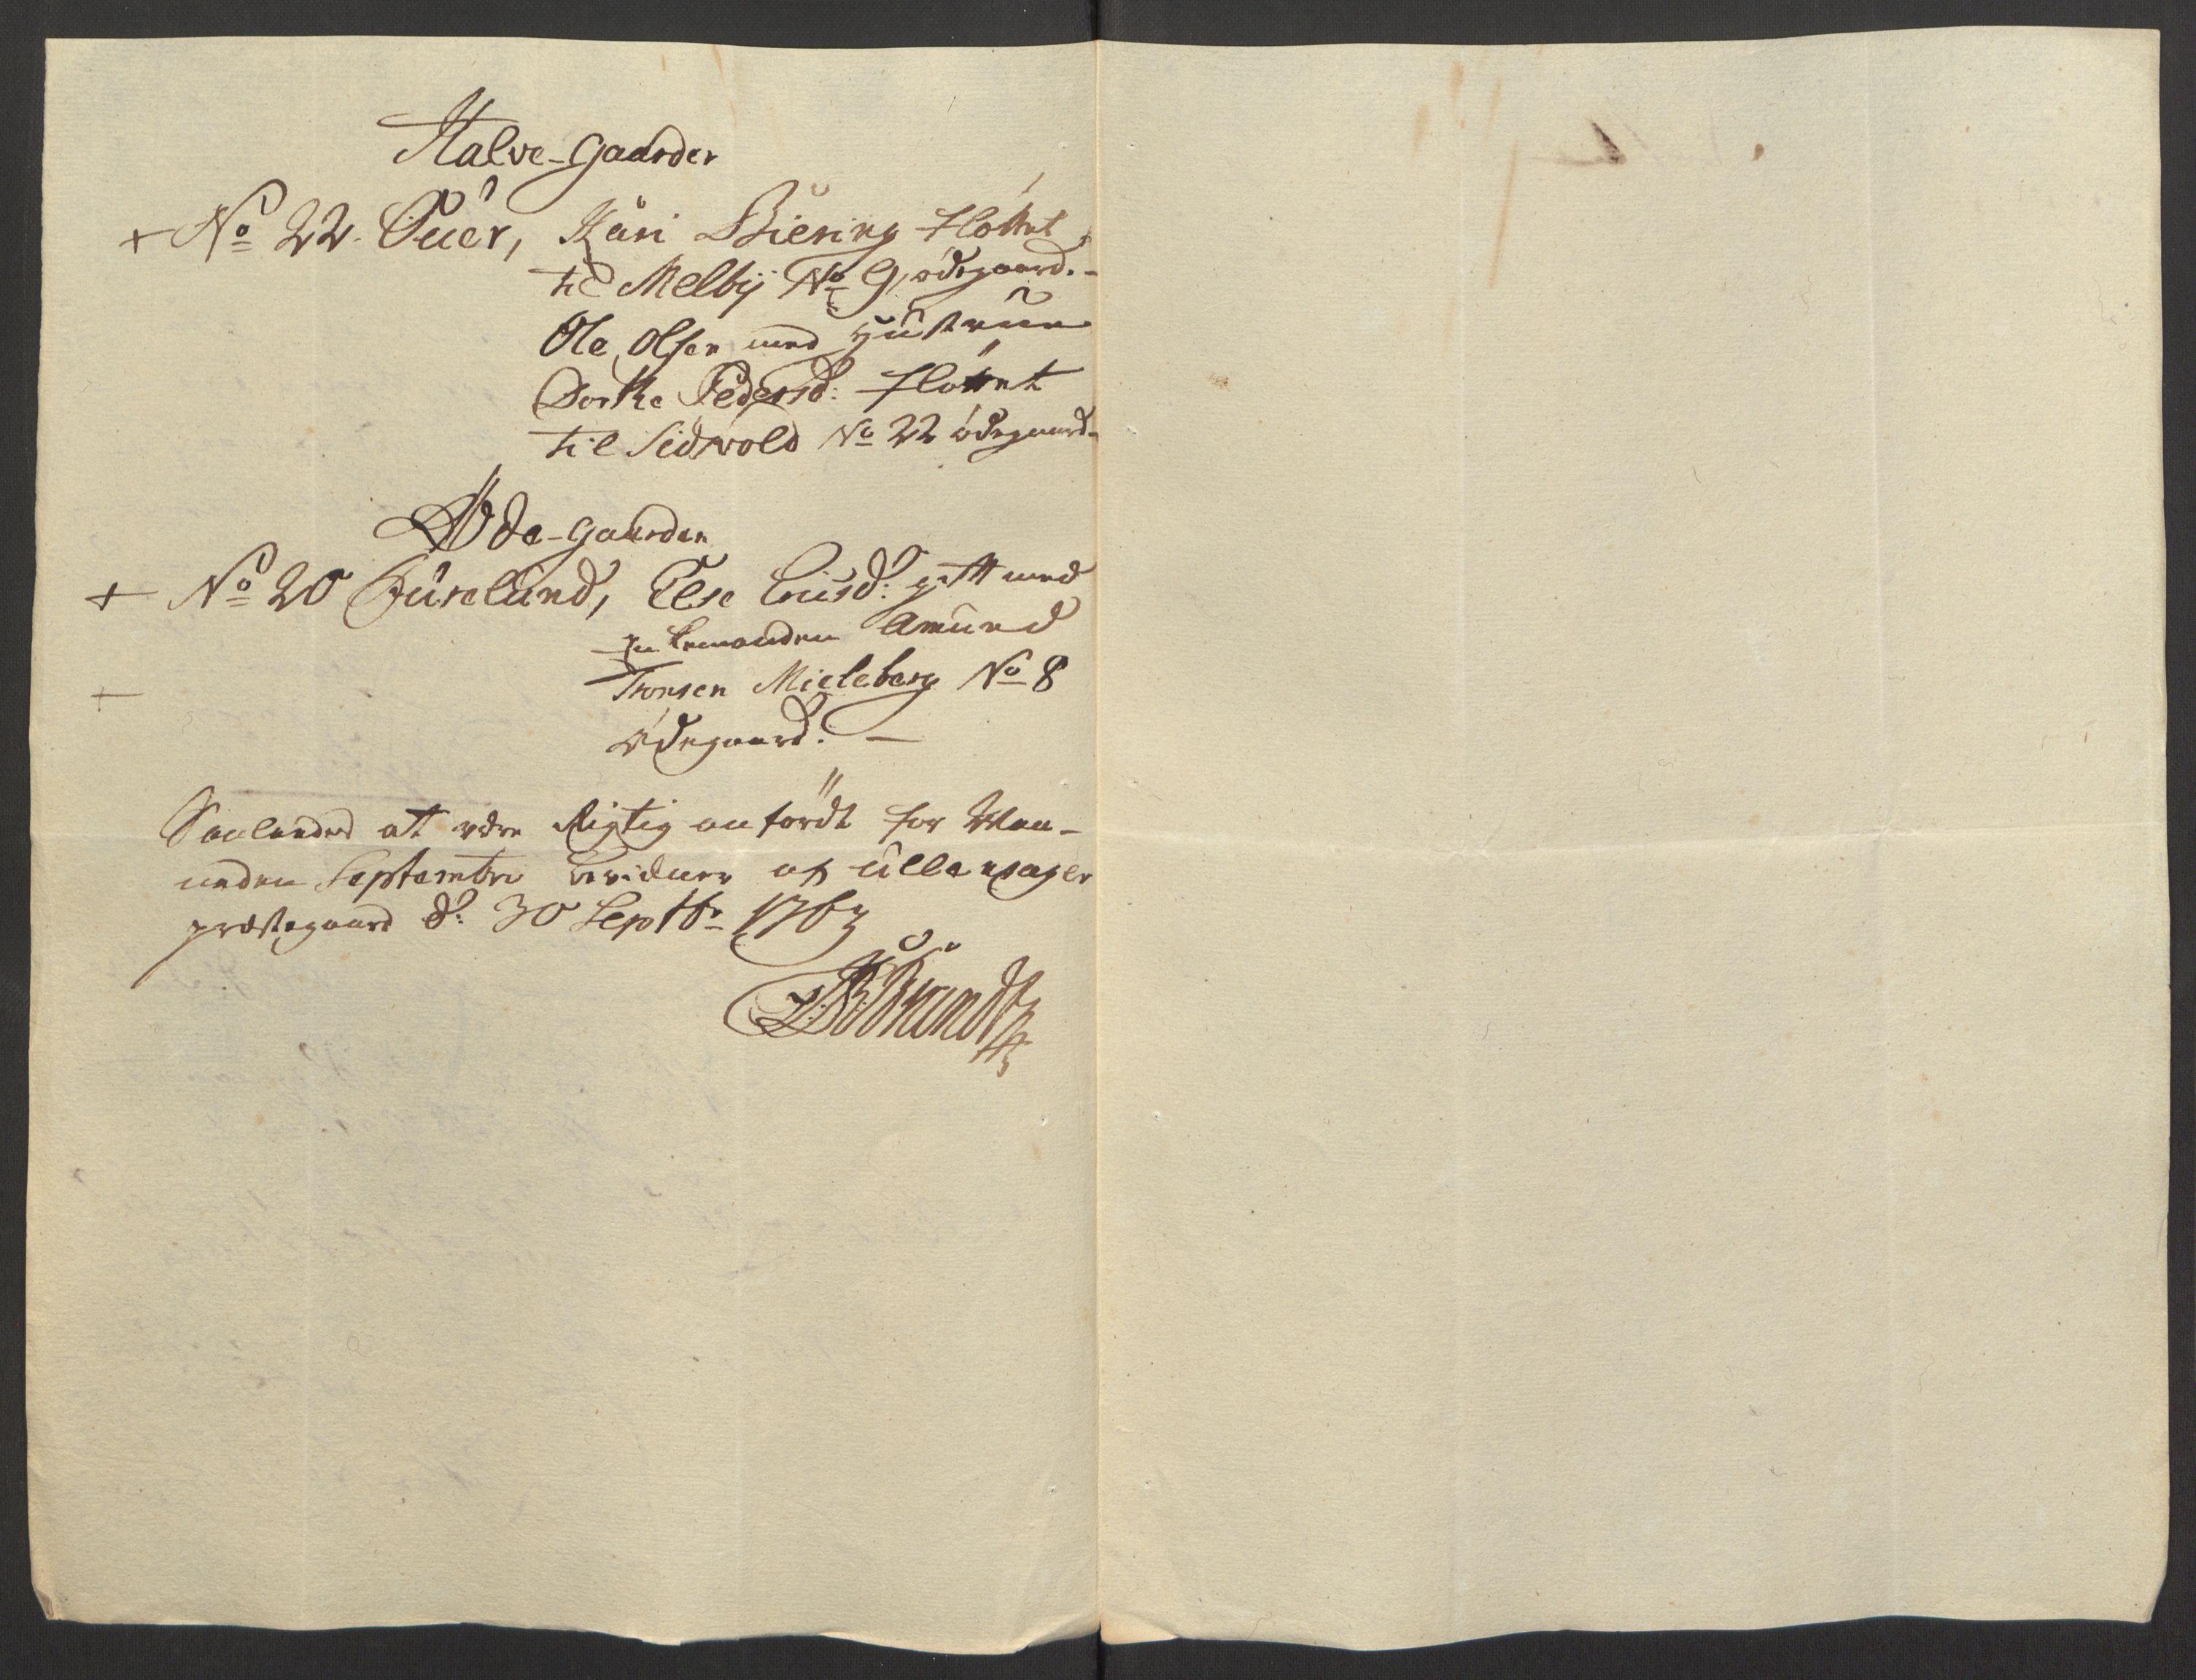 Halve-Gaarder
+ No 22. Øuer, Kari Biering flöttet
til Melbÿ No 9, ödegaard.-
Ole Olsen med Hustrue
Dorthe Pedersd: flöttet
til Sidwold No 22 ödegaard-
Øde-Gaarder
+ No 20 Furelund, Else gift med
Amund
Tronsen Mieleberg No 8
ödegaard. -
Saaledes at være Rigtig anfördt for Maa-
neden Septembr bevidner af Ullensager
præstegaard d: 30 Septbr 1763
Brundt